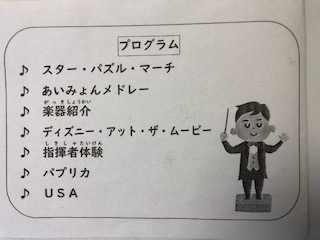 プログラム
♪ スター・パズル・マーチ
♪ あいみょんメドレー
がっきしょうかい
♪ 楽器紹介
♪ ディズニー・アット・ザ・ムービー
しきしゃたいけん
♪ 指揮者体験
♪ パプリカ
♪ USA